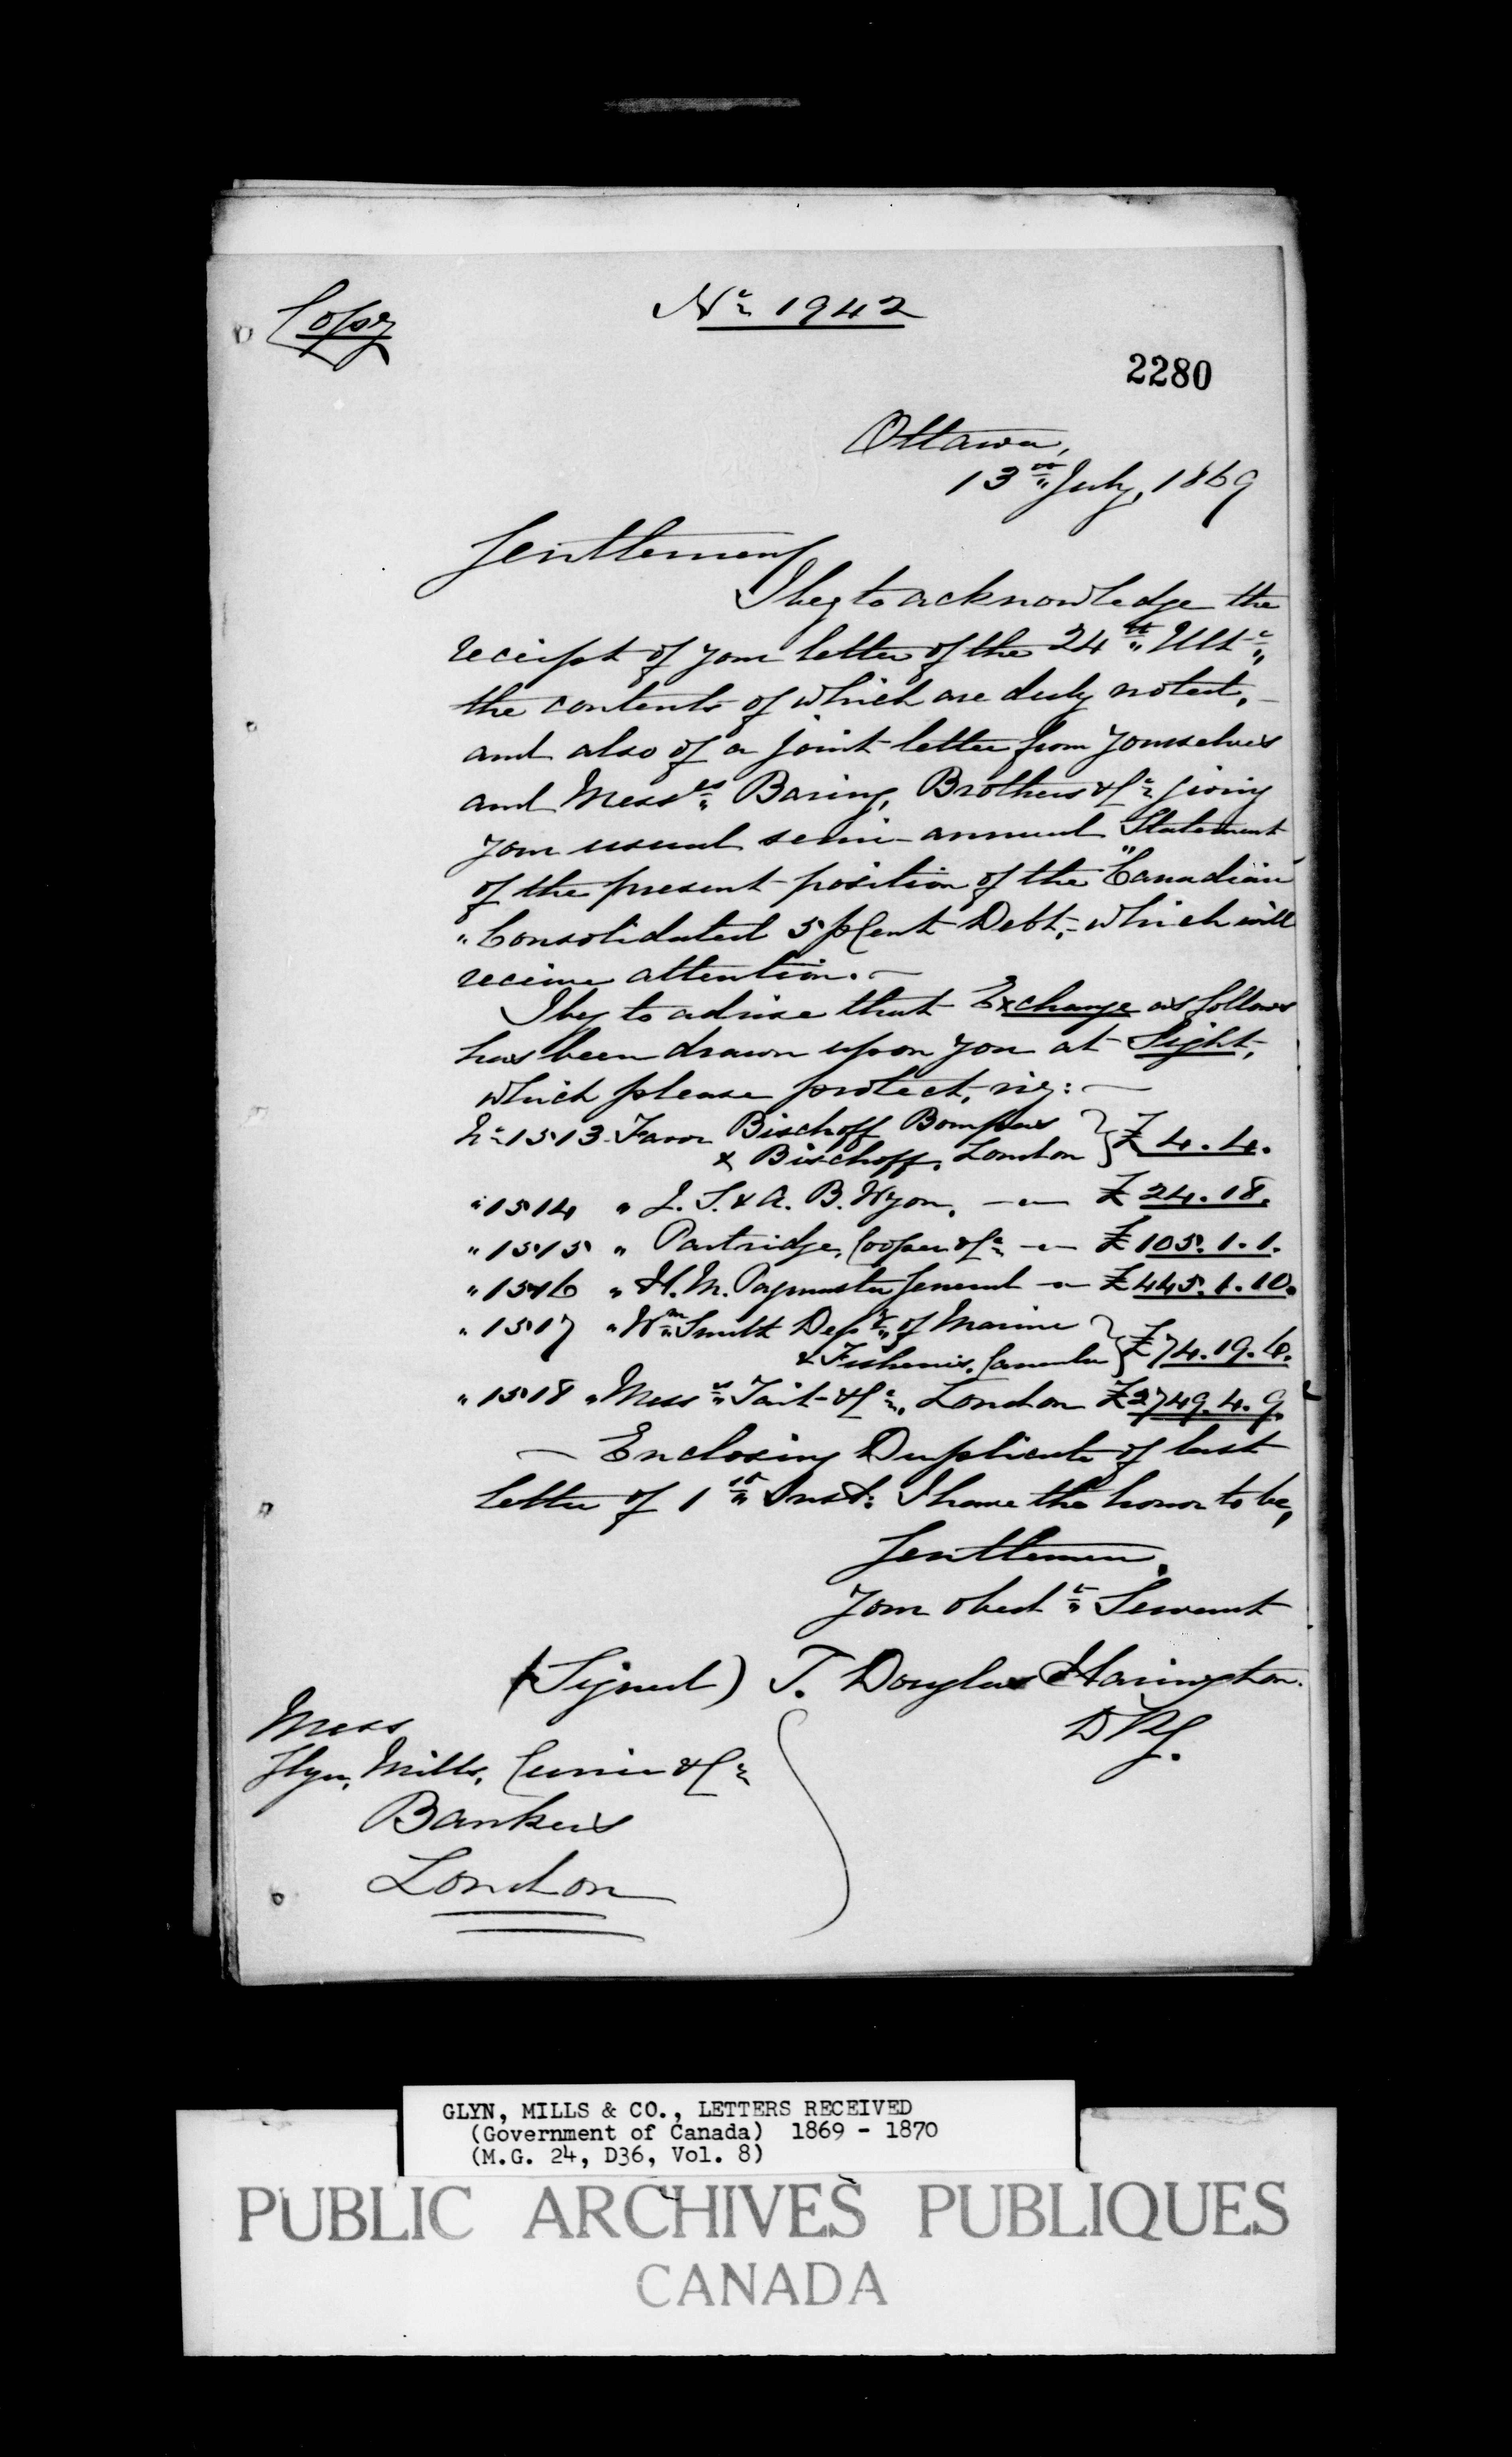 Copy
No 1942
2280
Ottawa,
13th July, 1869
Gentlemen
I beg to acknowledge the
receipt of your letter of the 24th Ulto,
the contents of which are duly noted, –
and also of a joint letter from yourselves
and Messrs Baring, Brothers & Co giving
your usual semi-annual Statement
of the present position of the "Canadian
"Consolidated 5 p Cent Debt, – which will
receive attention. –
I beg to advise that Exchange as follows
has been drawn upon you at Sight,
which please protect, viz: –
No 1513 Favor Bischoff Bompas
& Bischoff, London } £4.4.
" 1514 " J. S. & A. B. Wyon, – " – £24.18.
" 1515 " Partridge, Cooper & Co – " – £105.1.1.
" 1516 " H. M. Paymaster General – " £445.1.10.
" 1517 " Wm Smith Dept of Marine
& Fisheries, Canada } £74.19.6.
" 1518 " Messrs Tait & Co, London £2749.4.9.
– Enclosing Duplicate of last
letter of 1st Inst: I have the honor to be,
Gentlemen,
Your obedt Servant
(Signed) T. Douglas Harington.
DRG.
Mess
Glyn, Mills, Currie & Co
Bankers
London
GLYN, MILLS & CO., LETTERS RECEIVED
(Government of Canada) 1869 - 1870
(M.G. 24, D36, Vol. 8)
PUBLIC ARCHIVES PUBLIQUES
CANADA